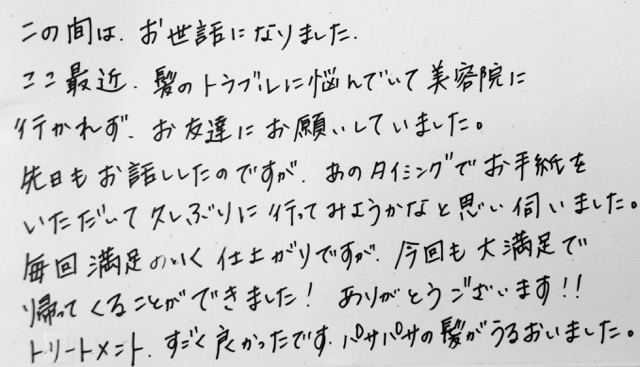 この間は、お世話になりました.
ここ最近、髪のトラブルに悩んでいて美容院に
行かれず、お友達にお願いしていました。
先日もお話ししたのですが、あのタイミングでお手紙を
いただいて久しぶりに行ってみようかなと思い伺いました。
毎回満足のいく仕上がりですが、今回も大満足で
帰ってくることができました！ありがとうございます!!
トリートメント、すごく良かったです.パサパサの髪がうるおいました。